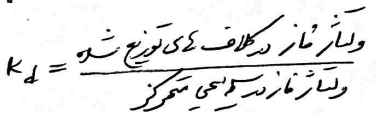 ولتاژ فاز در کلاف های توزیع شده
K_d =
ولتاژ فاز در سیم پیچی متمرکز